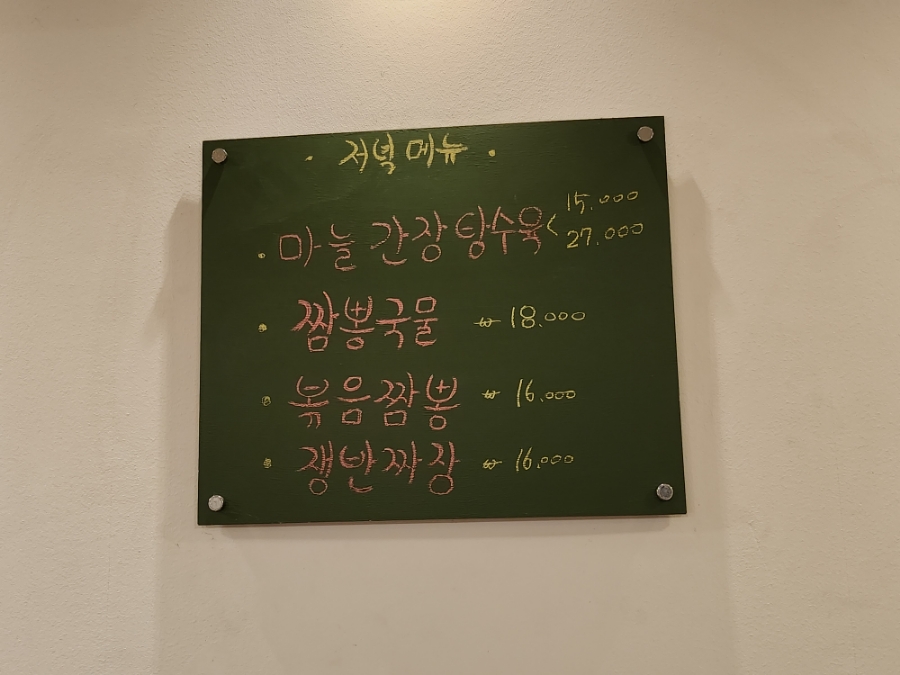 · 저녁 메뉴 ·
· 마늘 간장 탕수육 < 15.000
27.000
· 짬뽕국물 ₩ 18.000
· 볶음짬뽕 ₩ 16.000
· 쟁반짜장 ₩ 16.000